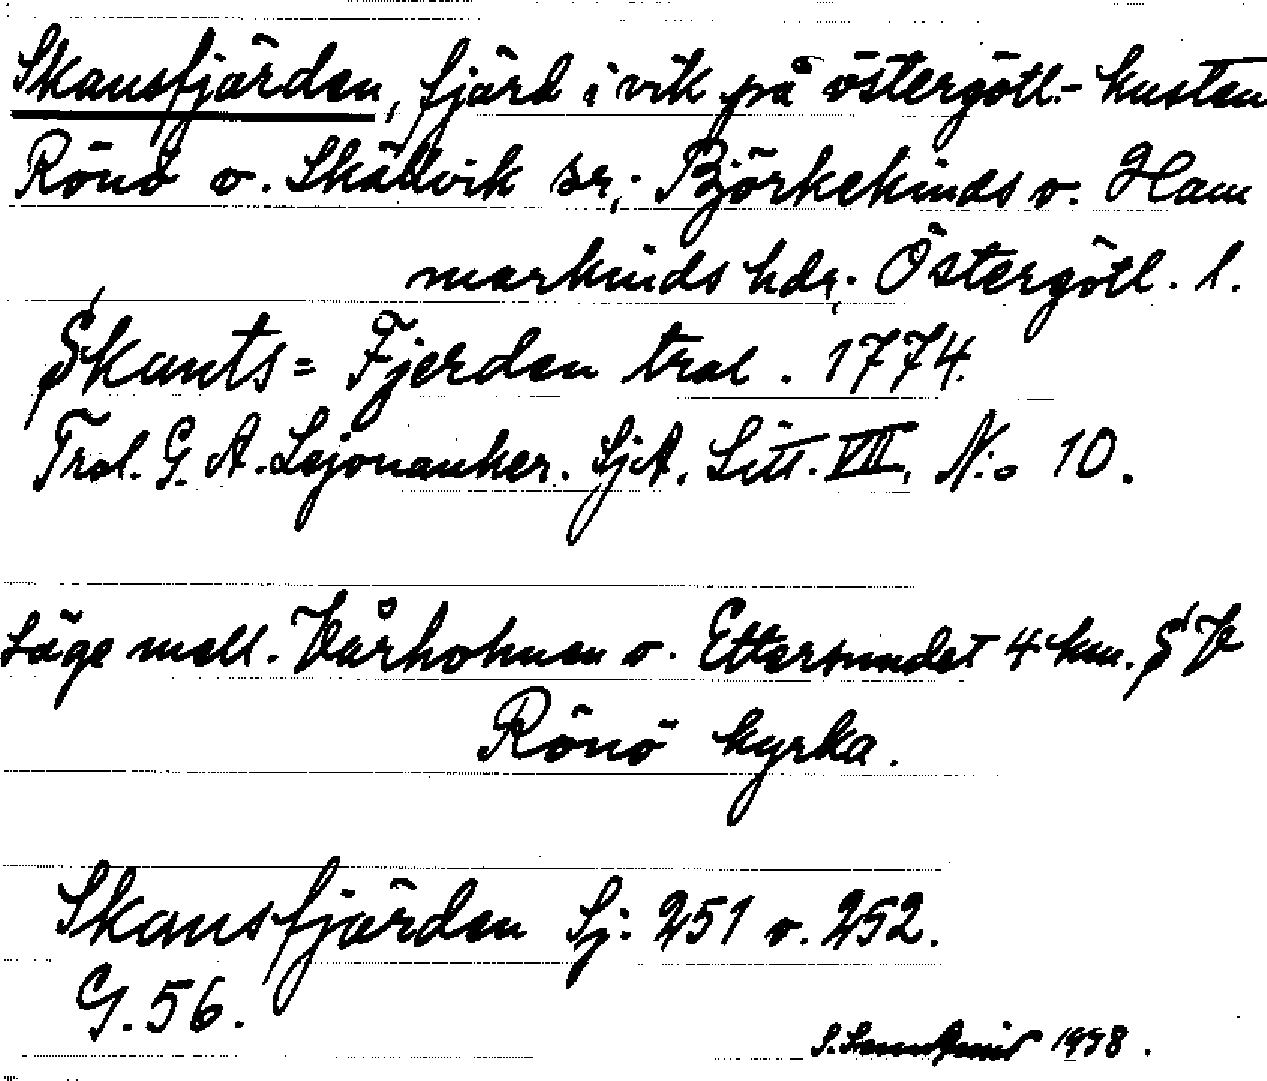 Skansfjärden, fjärd i vik på östergötl.- kusten
Rönö o. Skällvik sr,; Björkekinds o. Ham
markinds hdr,. Östergötl. l.
Skants= Fjerden tral. 1774.
Tral. G. A. Lejonanker. SjA. Litt. VIII, N:o 10.
Läge mell. Vårholmen o. Ettersundet 4 km. SV
Rönö kyrka.
Skansfjärden Sj: 251 o. 252.
G. 56.
1938.